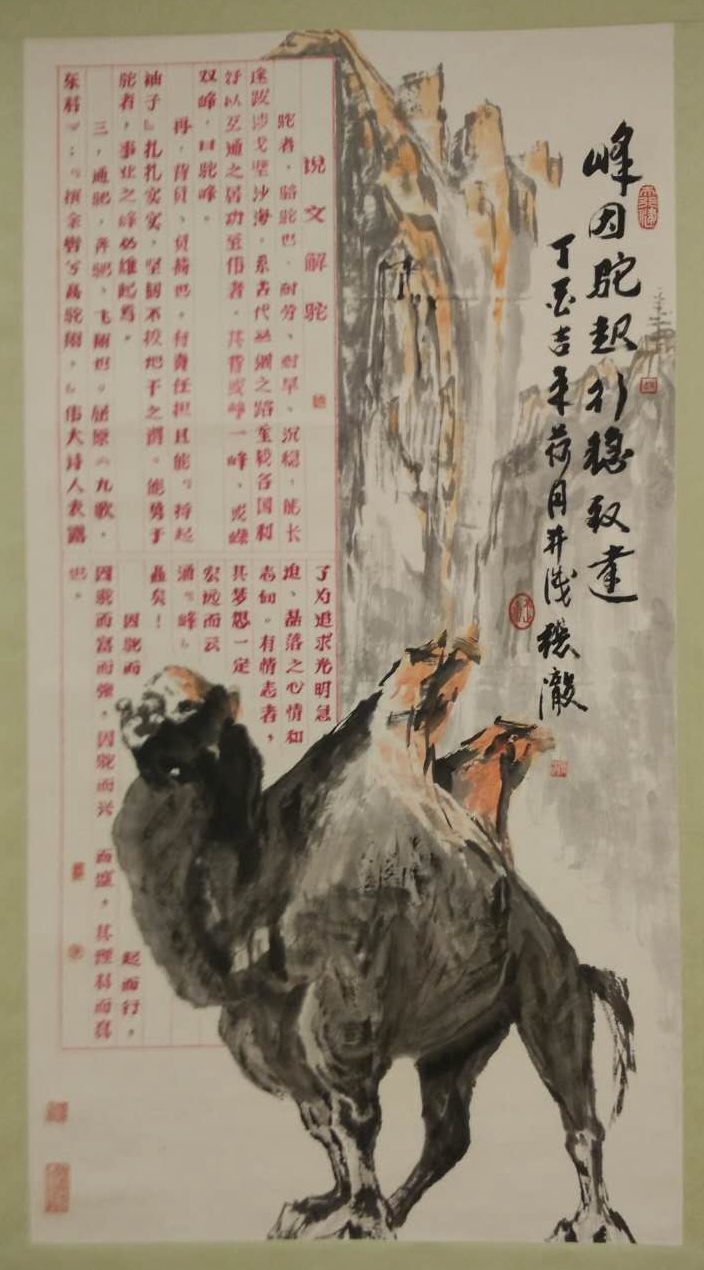 峰因驼起行稳致達
丁酉吉年荷月井
说文解驼
驼者，骆驼也。耐劳、耐旱、沉稳，能长
途跋涉戈壁沙海，系古代丝绸之路至较各国利
好以互通之居功至伟者，其背或峰一峰，或嵘
双峰，曰驼峰。
再，背负、负荷也。有责任担且能“捋起
袖子”扎扎实实，坚韧不拔地干之谓。能勇于
驼者，事业之峰必雄起焉。
三，通驰，奔驰、飞翔也。屈原《九歌·
东君》：“撰余辔兮高驼翔，”伟大诗人表露
了为追求光明急
迫、磊落之心情和
志向。有情志者，
其梦想一定
宏远而云
涌“峰”
矗矣！
因驼而起而行，
因驼而富而强，因驼而兴而盛，其理易而真
也。